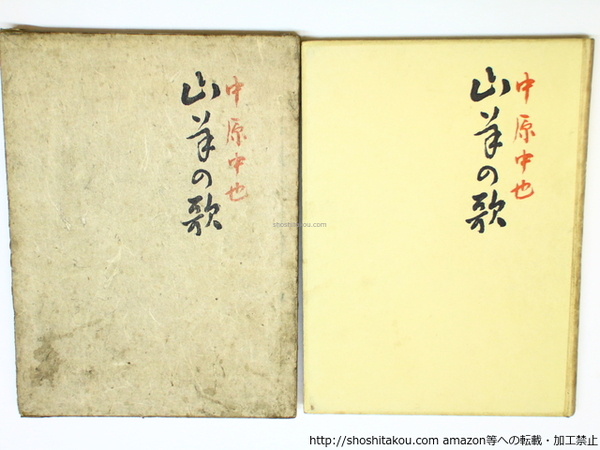 中原中也
山羊の歌
中原中也
山羊の歌
shoshitakou.com
http://shoshitakou.com amazon等への転載・加工禁止